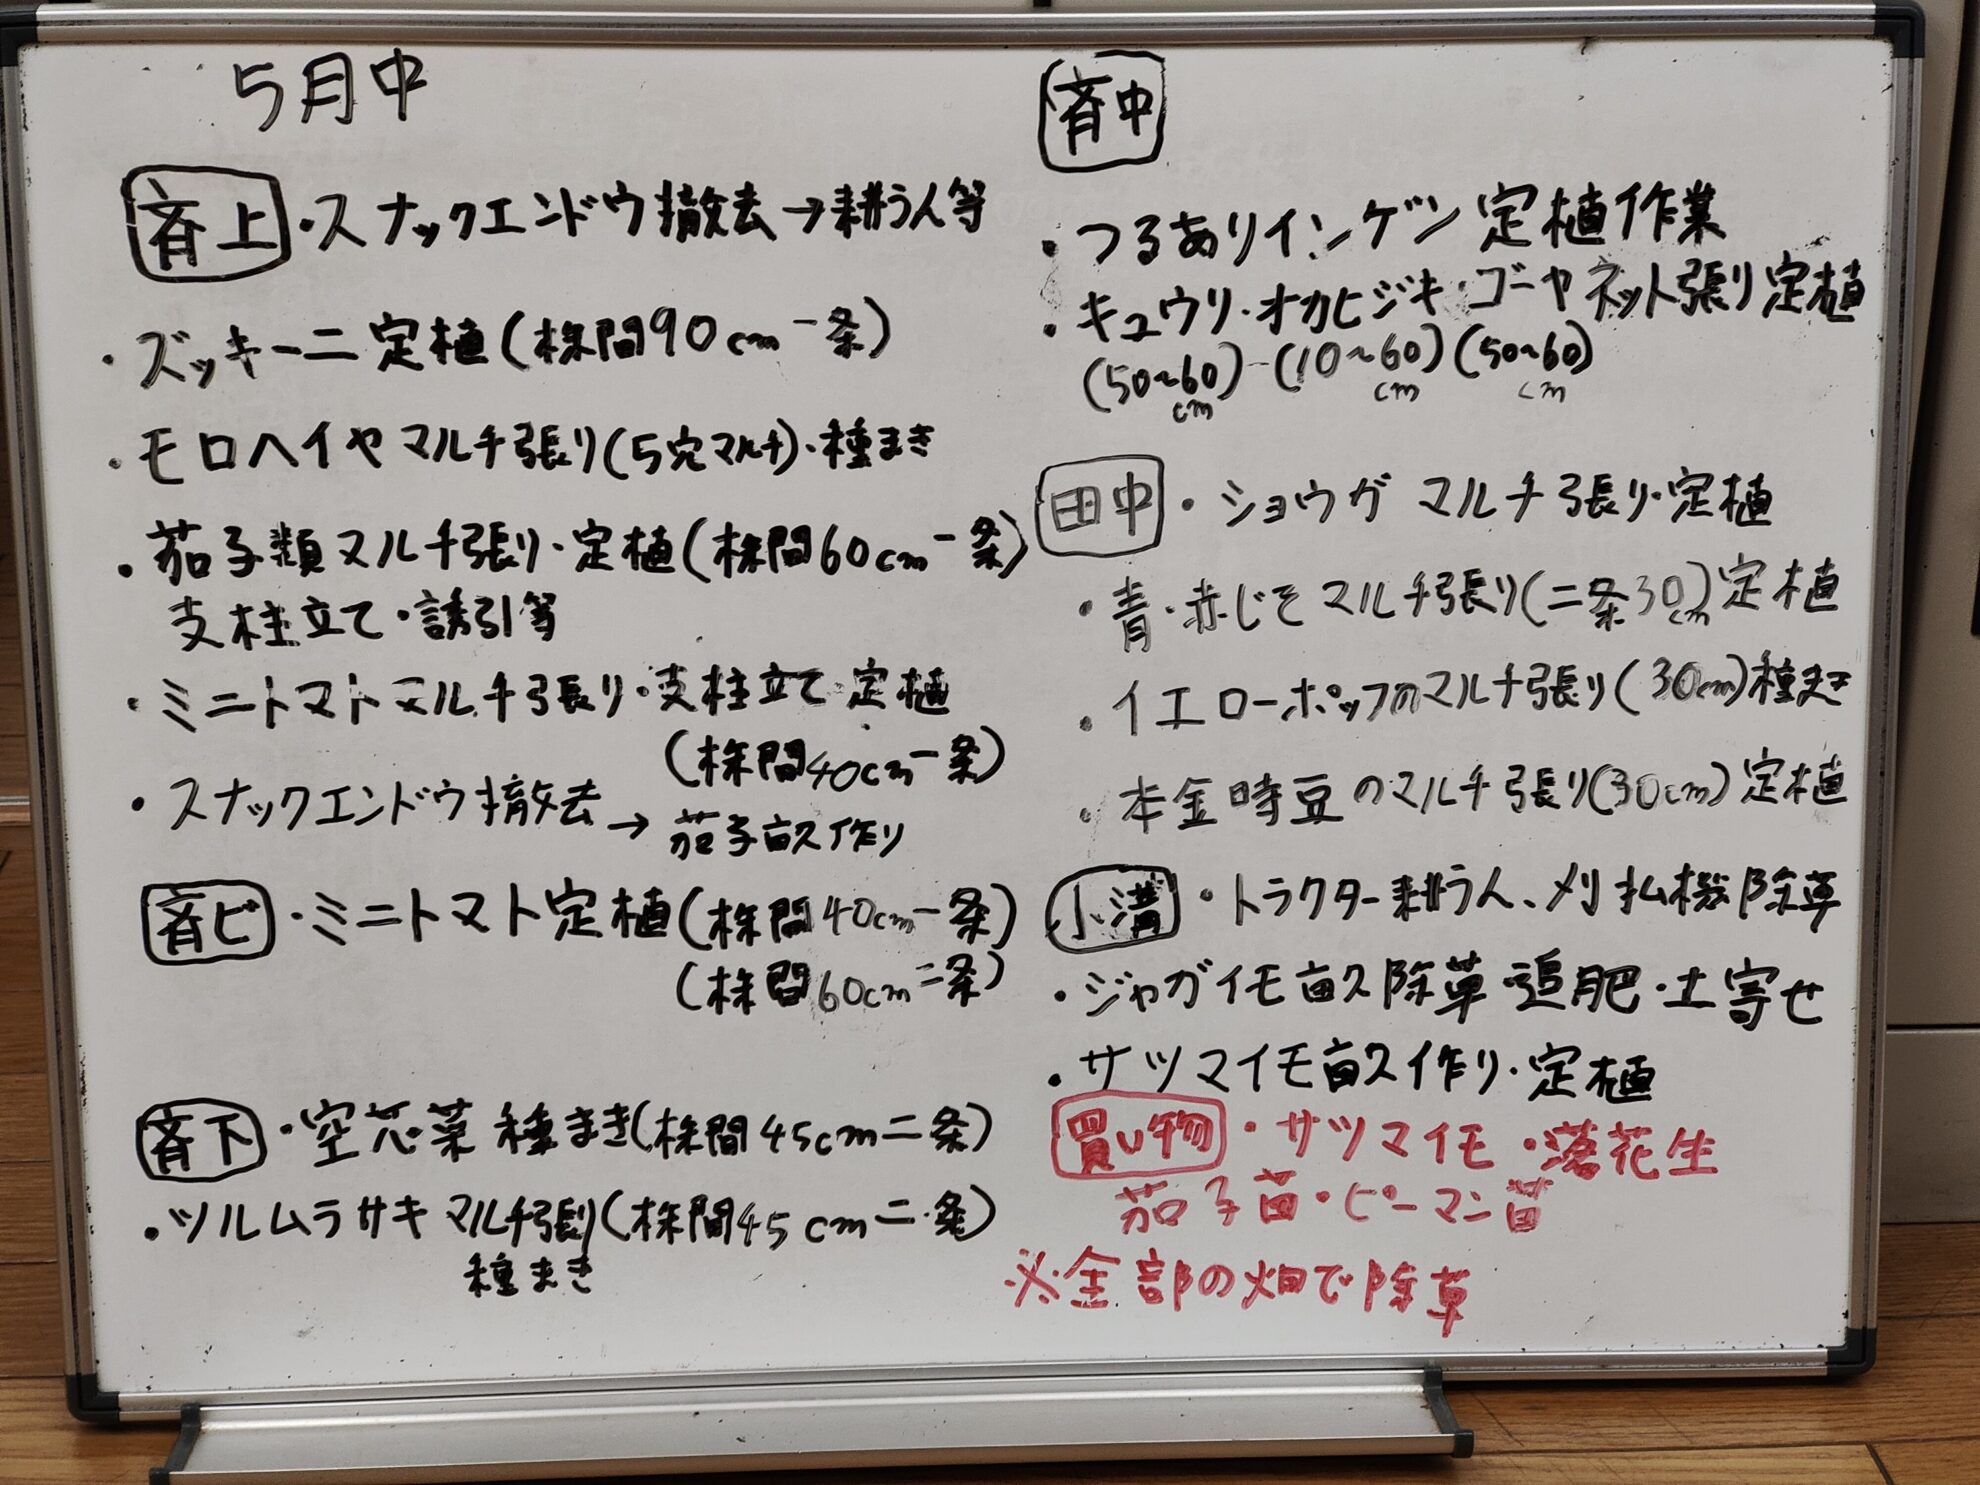 5月中
斉上・スナックエンドウ撤去→耕うん等
・ズッキーニ定植(株間90cm一条)
・モロヘイヤマルチ張り(5穴マルチ)・種まき
・茄子類マルチ張り・定植(株間60cm一条)
支柱立て・誘引等
・ミニトマトマルチ張り・支柱立て・定植
(株間40cm一条)
・スナックエンドウ撤去→茄子畝作り
斉ビ・ミニトマト定植(株間40cm一条)
(株間60cm二条)
斉下・空芯菜種まき(株間45cm二条)
・ツルムラサキマルチ張り(株間45cm二条)
種まき
斉中
・つるありインゲン定植作業
・キュウリ・オカヒジキ・ゴーヤネット張り定植
(50~60)-(10~60)(50~60)
cm cm cm
田中・ショウガ マルチ張り・定植
・青・赤じそマルチ張り(二条30cm)定植
・イエローポップのマルチ張り(30cm)種まき
・本金時豆のマルチ張り(30cm)定植
小溝・トラクター耕うん、刈払機除草
・ジャガイモ畝除草・追肥・土寄せ
・サツマイモ畝作り・定植
買い物・サツマイモ・落花生
茄子苗・ピーマン苗
※全部の畑で除草